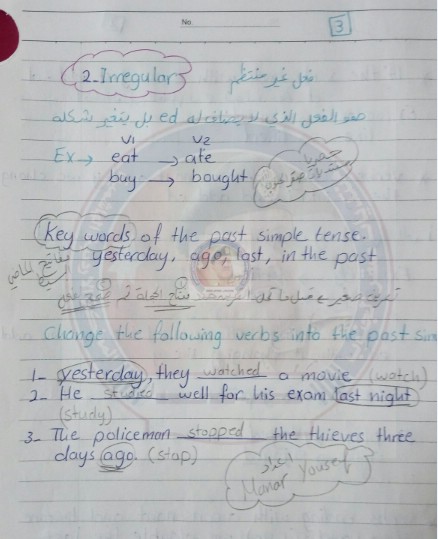 No.
3
2. Irregular فعل غير منتظم
هو الفعل الذي لا يضاف له ed بل يتغير شكله
V1 V2
Ex → eat → ate
buy → bought
Key words of the past simple tense.
yesterday, ago, last, in the past
Change the following verbs into the past sim
1- yesterday, they watched a movie (watch)
2- He studied well for his exam last night
(study)
3- The policeman stopped the thieves three
days ago. (stop)
اعداد
Manar Yousef